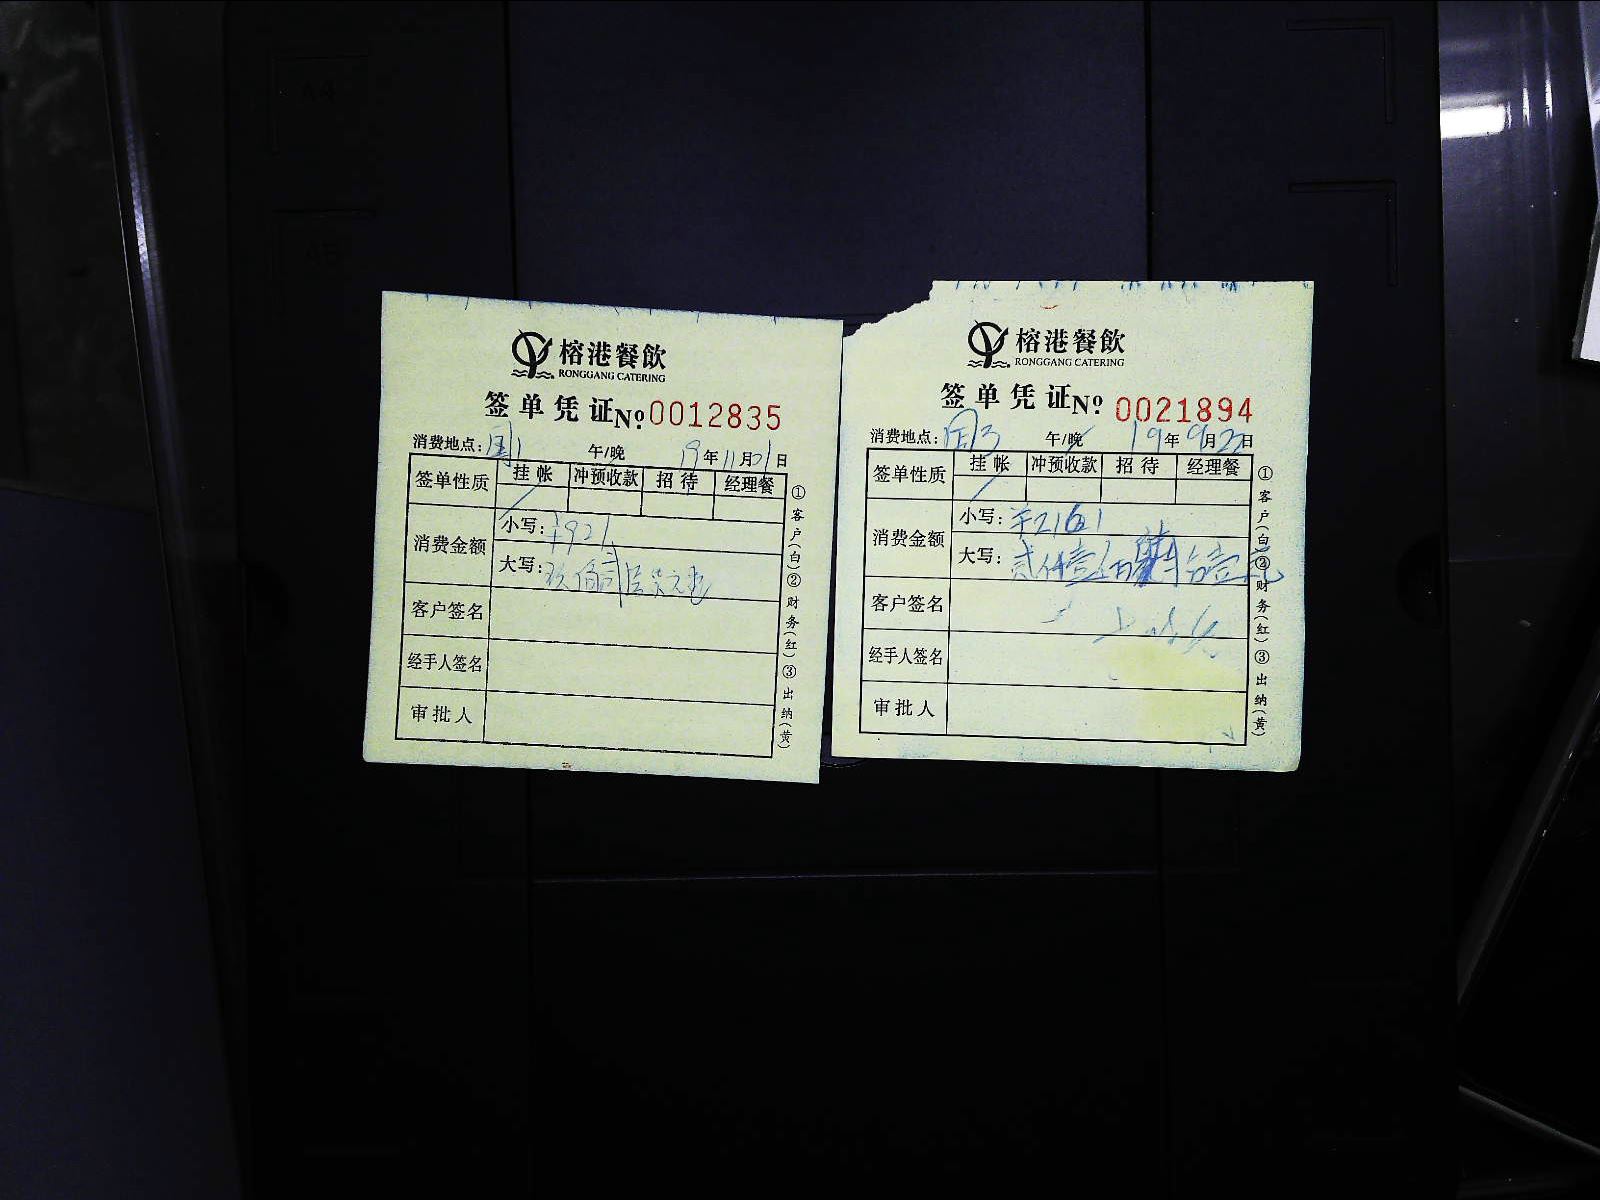 榕港餐飲
RONGGANG CATERING
签单凭证 No 0012835
消费地点: 午/晚 19年11月21日
签单性质 挂帐 冲预收款 招待 经理餐
消费金额 小写: ¥921
大写:
客户签名
经手人签名
审批人
①客户(白)②财务(红)③出纳(黄)
榕港餐飲
RONGGANG CATERING
签单凭证 No 0021894
消费地点: 午/晚 19年9月22日
签单性质 挂帐 冲预收款 招待 经理餐
消费金额 小写: ¥2161
大写: 贰仟壹佰
客户签名
经手人签名
审批人
①客户(白)②财务(红)③出纳(黄)